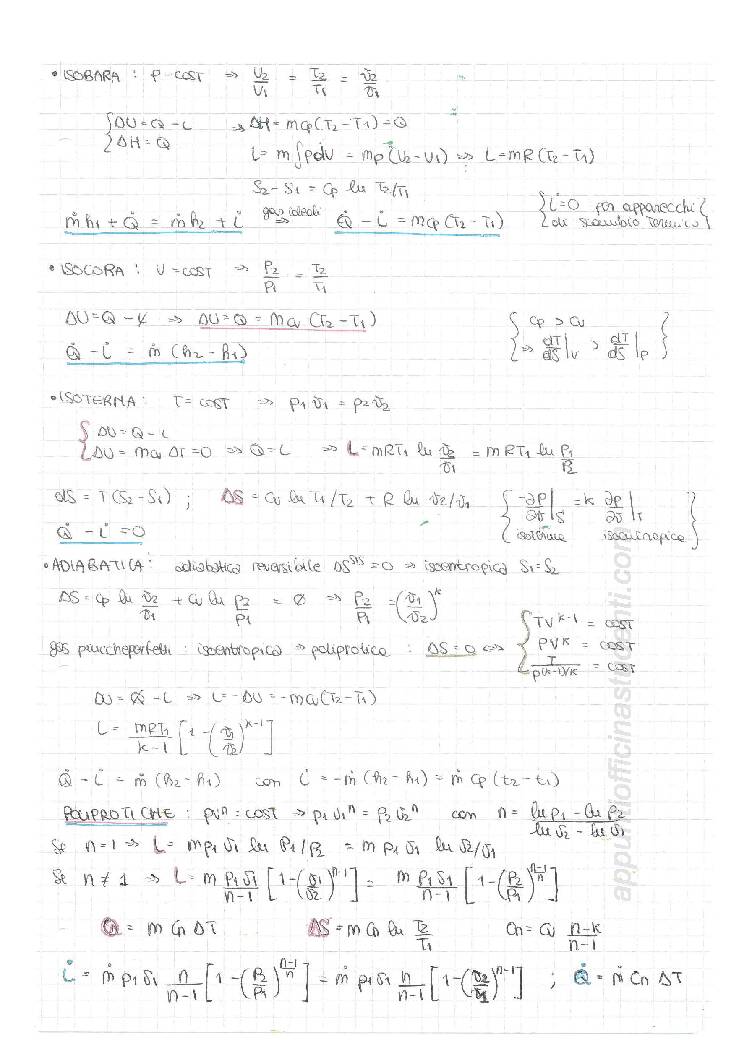 • ISOBARA : P=COST ⇒ V2/V1 = T2/T1 = v2/v1
{ ΔU=Q-L ⇒ ΔH=mcp(T2-T1)=Q
{ ΔH=Q
L=m∫pdv = mp(v2-v1) ⇒ L=mR(T2-T1)
S2-S1 = cp ln T2/T1
ṁh1+Q̇ = ṁh2+L̇ gas ideali ⇒ Q̇-L̇=mcp(T2-T1) { L̇=0 per apparecchi di scambio termico }
• ISOCORA : V=COST ⇒ P2/P1 = T2/T1
ΔU=Q-L ⇒ ΔU=Q=mcv(T2-T1) { cp > cv
Q̇-L̇ = ṁ(h2-h1) ⇒ dT/dS|v > dT/dS|p }
• ISOTERMA: T=COST ⇒ p1v1=p2v2
{ ΔU=Q-L
{ ΔU=mcvΔT=0 ⇒ Q=L ⇒ L=mRT1 ln v2/v1 = mRT1 ln P1/P2
dS=T(S2-S1) ; ΔS=cv ln T1/T2 + R ln v2/v1 { -∂P/∂v|S = k ∂P/∂v|T
Q̇-L̇=0 isoterme isoentropica }
• ADIABATICA: adiabatica reversibile ΔS^SIS=0 ⇒ isoentropica S1=S2
ΔS=cp ln v2/v1 + cv ln P2/P1 = 0 ⇒ P2/P1 = (v1/v2)^k
gas piuccheperfetti : isoentropica ⇒ poliprotica : ΔS=0 ⇔ { TV^k-1 = COST
PV^k = COST
T/P^(k-1)/k = COST
ΔU=Q-L ⇒ L=-ΔU=-mcv(T2-T1)
L= mRT1/k-1 [1-(v1/v2)^k-1]
Q̇-L̇ = ṁ(h2-h1) con L̇=-ṁ(h2-h1)=ṁcp(t2-t1)
POLIPROTICHE : pv^n=COST ⇒ p1v1^n=p2v2^n con n= ln p1 - ln p2 / ln v2 - ln v1
Se n=1 ⇒ L=mp1v1 ln P1/P2 = mp1v1 ln v2/v1
Se n≠1 ⇒ L=m p1v1/n-1 [1-(v1/v2)^n-1] = m p1v1/n-1 [1-(P2/P1)^n-1/n]
Q = mcnΔT ΔS=mcn ln T2/T1 cn=cv n-k/n-1
L̇=ṁp1v1 n/n-1 [1-(P2/P1)^n-1/n] = ṁp1v1 n/n-1 [1-(v2/v1)^n-1] ; Q̇=ṁcnΔT
appuntiofficinastudenti.com